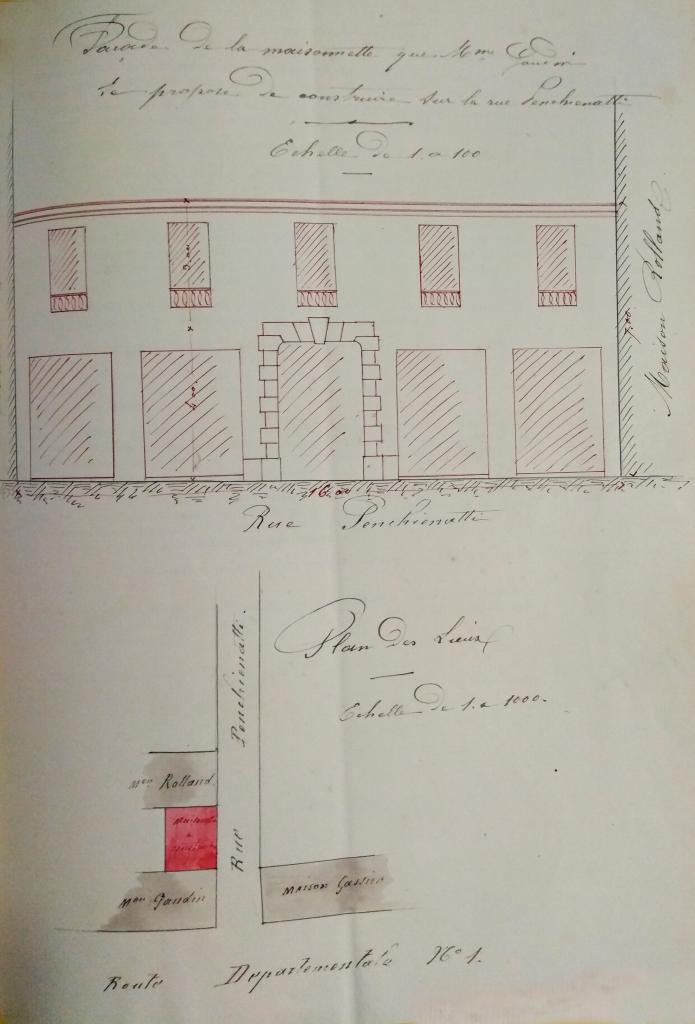 Façade de la maisonnette que Mme Gaudin
se propose de construire sur la rue Penchienatti
Echelle de 1. a 100
3.00
4.00
7.00
Maison Rolland
16.00
Rue Penchienatti
Plan des Lieux
Echelle de 1. a 1000.
Rue Penchienatti.
Mon Rolland
Maisonnette
a
construire
Mon Gaudin
Maison Gassier
Route Departementale No 1.